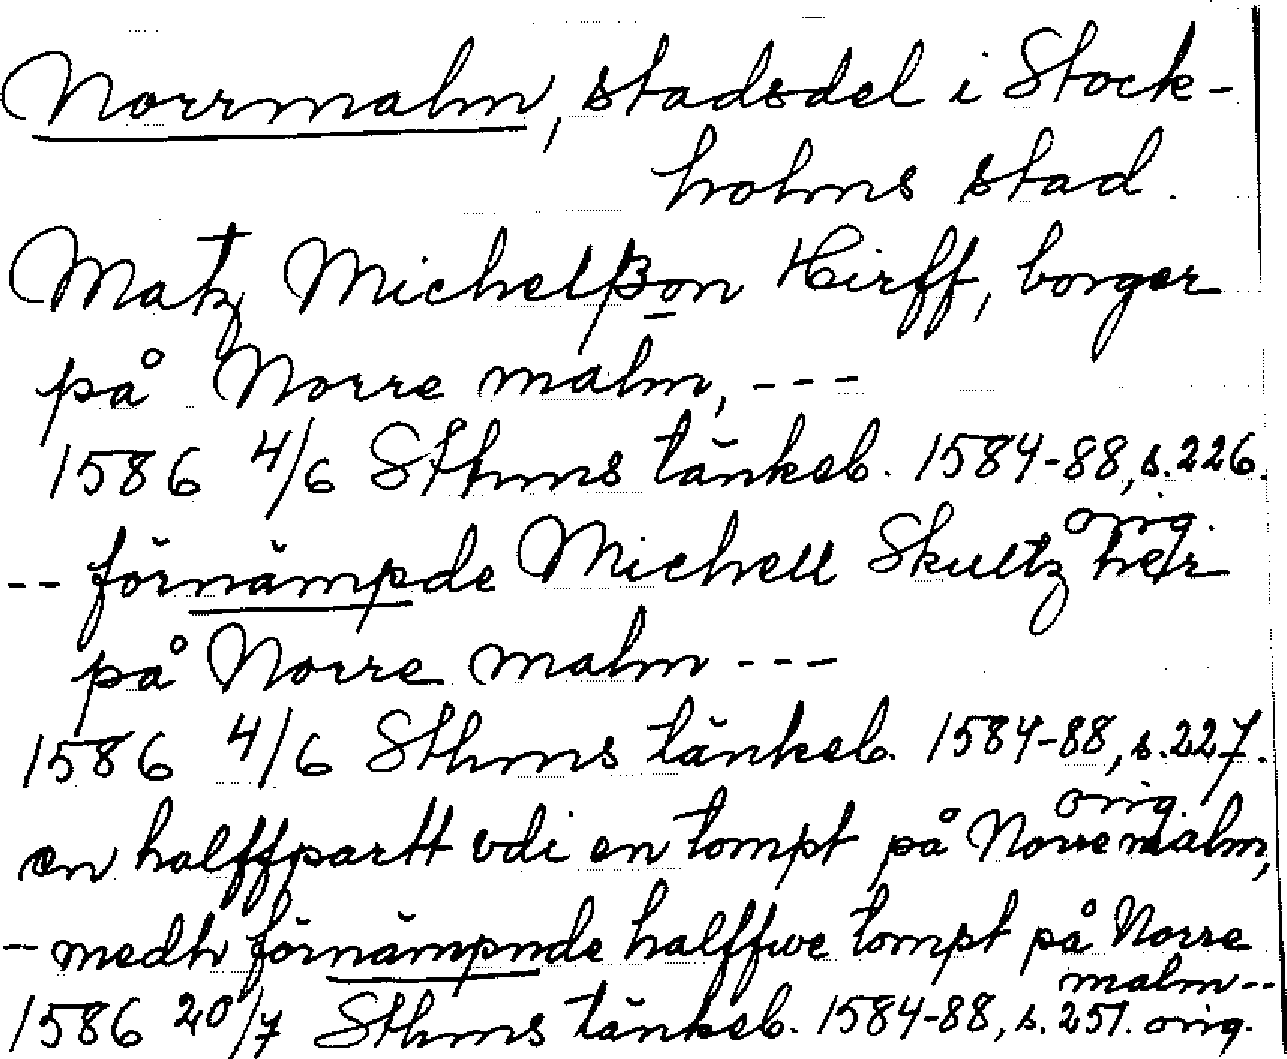 Norrmalm, stadsdel i Stock-
holms stad.
Matz Michelßon Hirff, borger
på Norre malm, ---
1586 4/6 Sthms tänkeb. 1584-88, s. 226.
orig.
-- förnämpde Michell Skultz heir
på Norre malm ---
1586 4/6 Sthms tänkeb. 1584-88, s. 227.
orig.
en halffpartt vdi en tompt på Norre malm,
- medh förnämpnde halffwe tompt på Norre
malm --
1586 20/7 Sthms tänkeb. 1584-88, s. 251. orig.